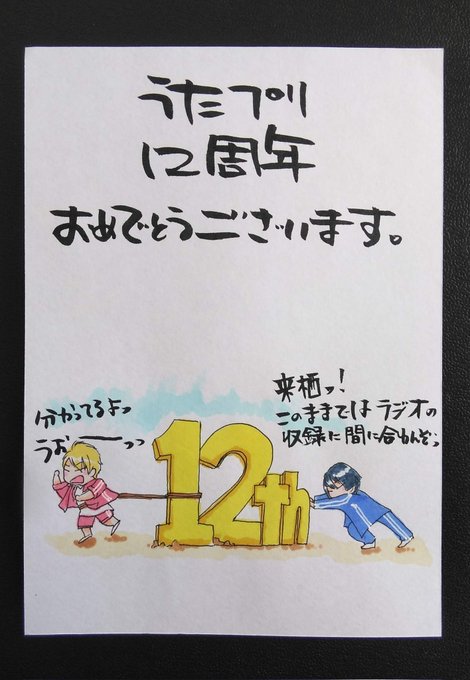 うたプリ
12周年
おめでとうございます。
来栖ッ!
このままではラジオの
収録に間に合わんぞっ
分かってるよっ
うおーーっっ
12th